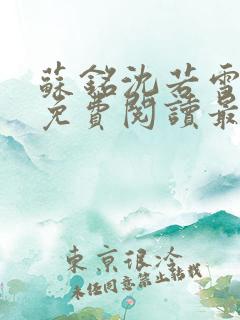 蘇銘沈若雪
免費閱讀最
東京很冷
未经同意禁止转载